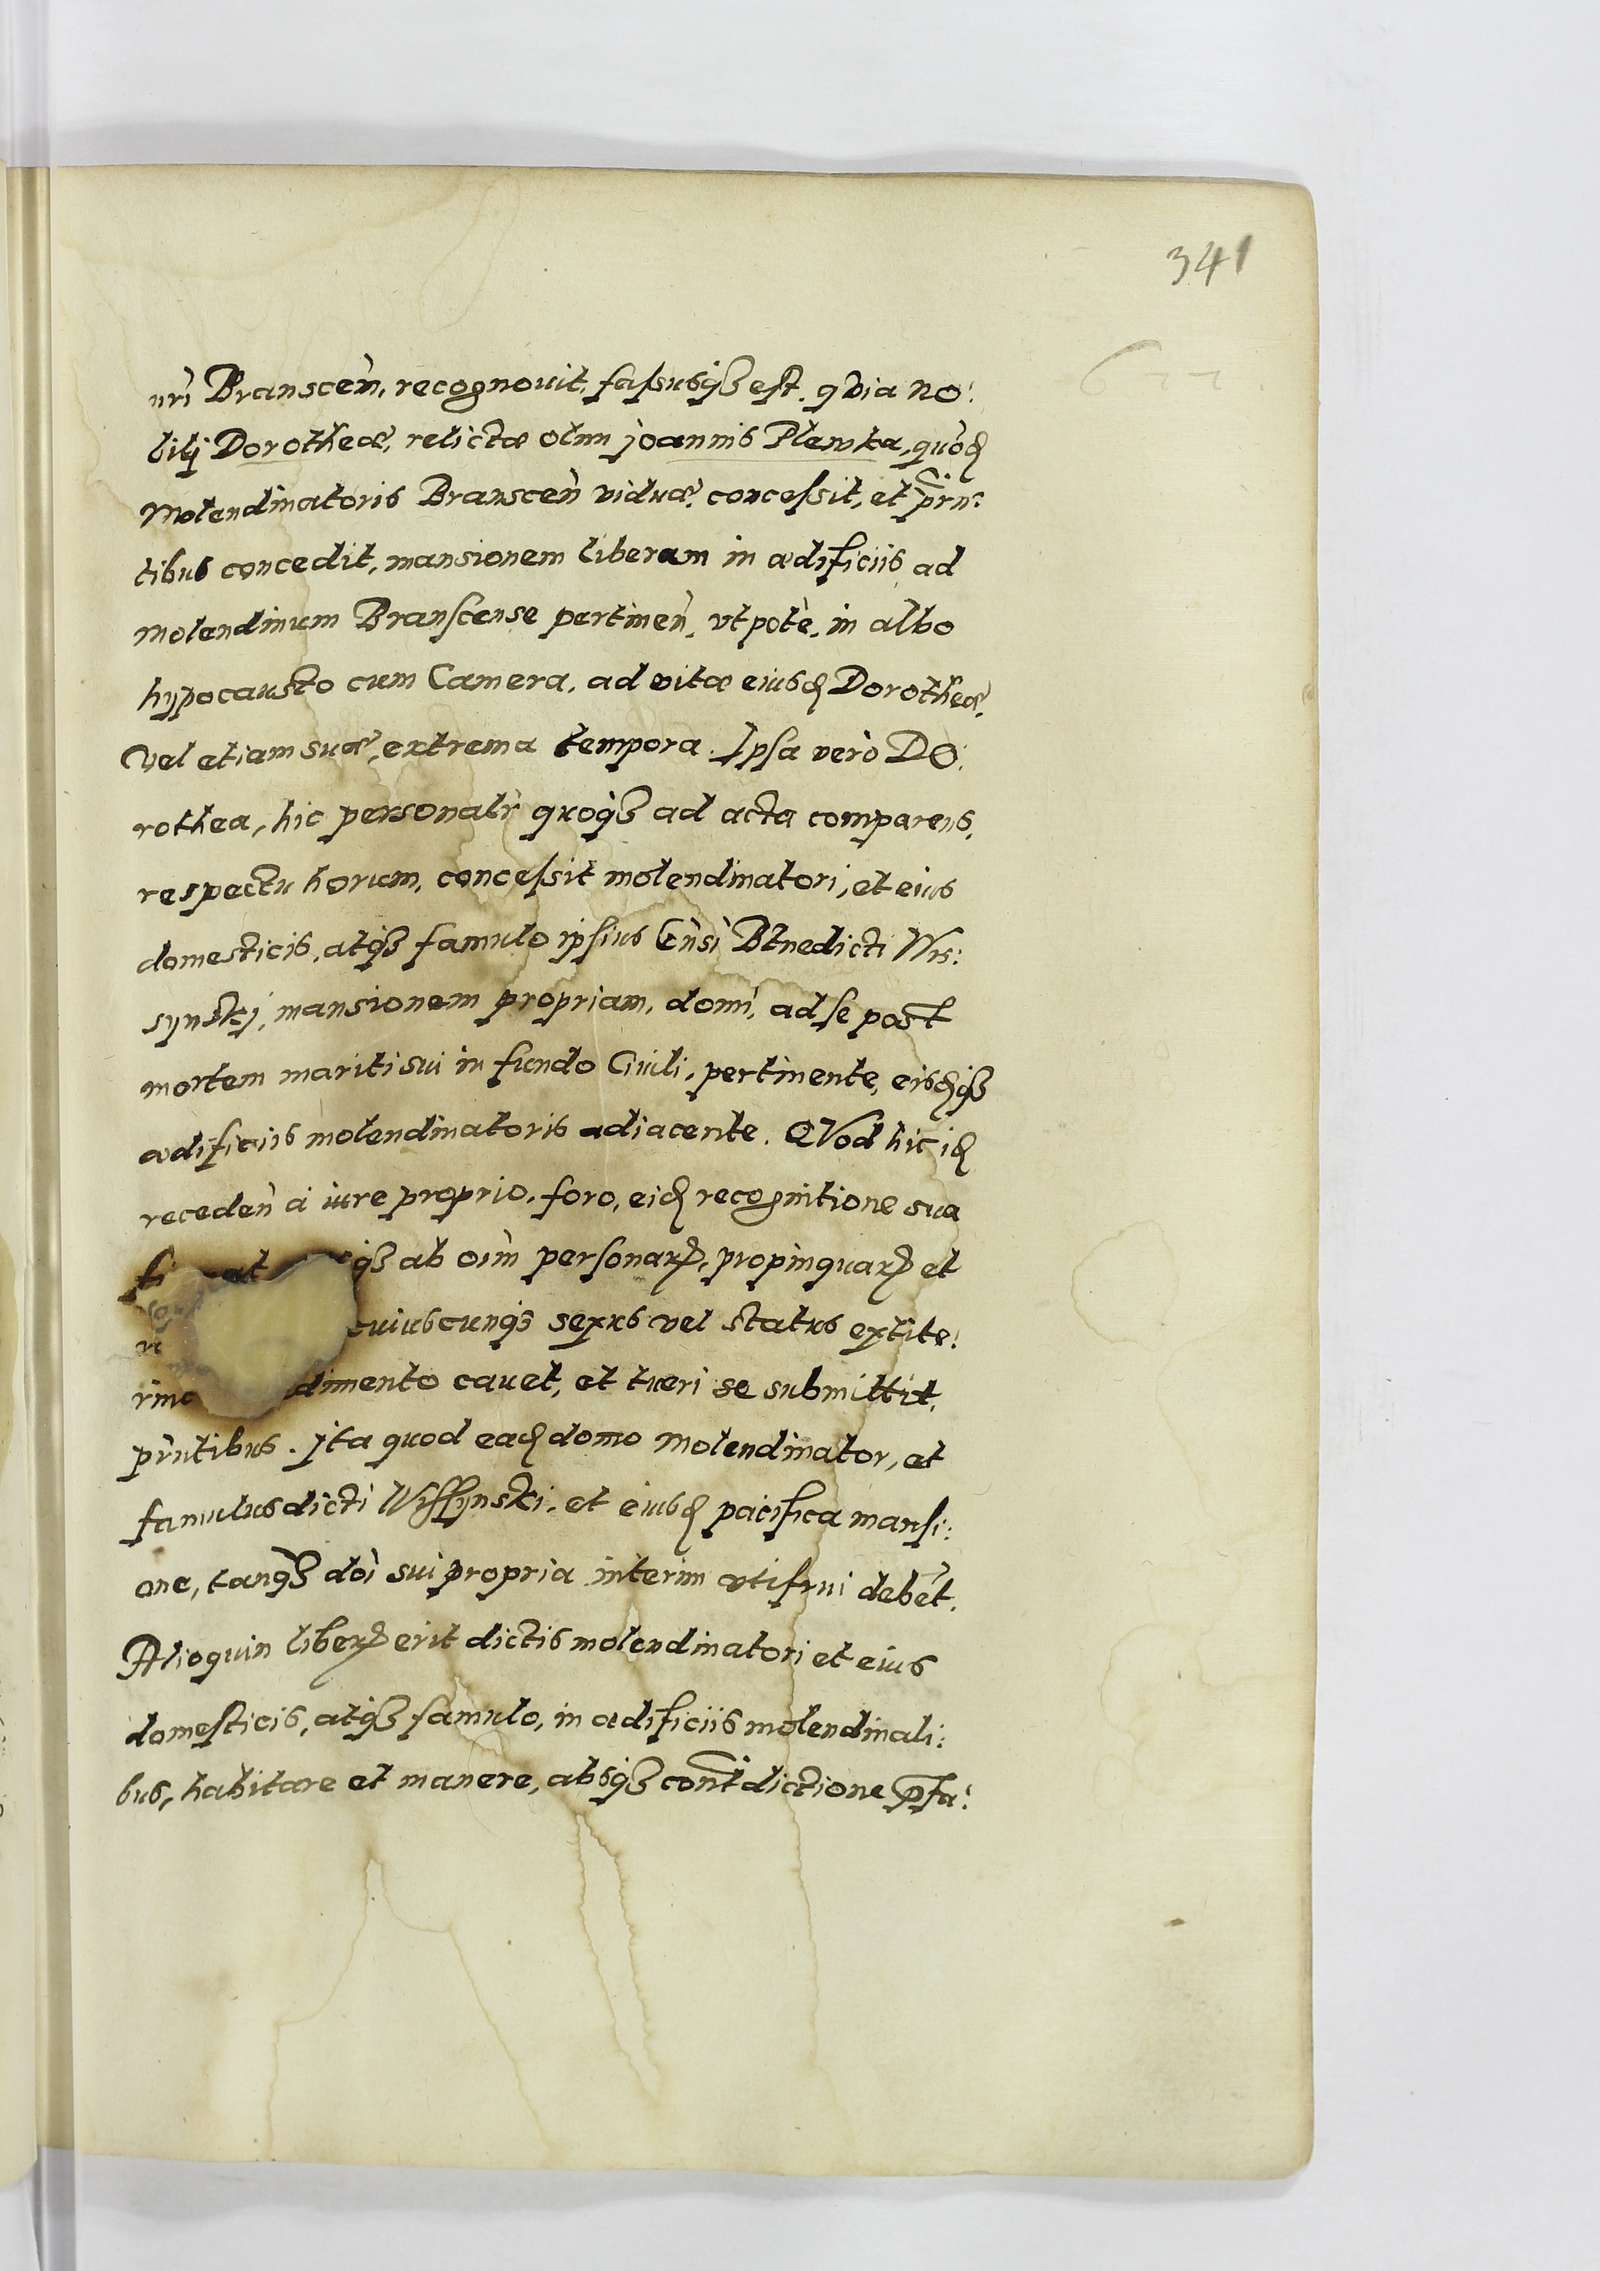 341
uri Branscen̄, recognouit, faſsusq₃ est. qvia no:
bilj Dorotheæ, relictæ olim joannis Plewka, quōd
Molendinatoris Branscen̄ viduæ, conceſsit, et p̄rn:
tibus concedit, mansionem liberam in ædificiis ad
molendinum Branſcense pertinen̄, vtpotè, in albo
hypocausto cum Camera, ad vitæ eiusd Dorotheæ,
Vel etiam suæ, extrema tempora. Ipſa verò Do:
rothea, hic personalr̄ quoq₃ ad acta comparens,
respectu horum, conceſsit molendinatori, et eius
domesticis, atq₃ famulo ipſius Benedicti Wis:
synskj, mansionem propriam, domi, ad ſe post
mortem mariti sui in fundo Ciuili, pertinente, eisdq₃
ædificiis molendinatoris adiacente. QVod hic id
receden̄ à iure proprio, foro, eid recognitione sua
q₃ ab oīm personarꝝ, propinquarꝝ et
cuiuscunq₃ sexus vel status extite:
dimento cauet, et tueri se submittit,
prn̄tibus. jta quod ead domo molendinator, et
famulus dicti Wiſſynski, et eiusd pacifica manſi:
one, tanq₃ doī sui propria interim vtifrui debēt.
Alioquin liberꝝ erit dictis molendinatori et eius
domeſticis, atq₃ famulo, in ædificiis molendinali:
bus, habitare et manere, absq₃ cont̄dictione p̄fa: